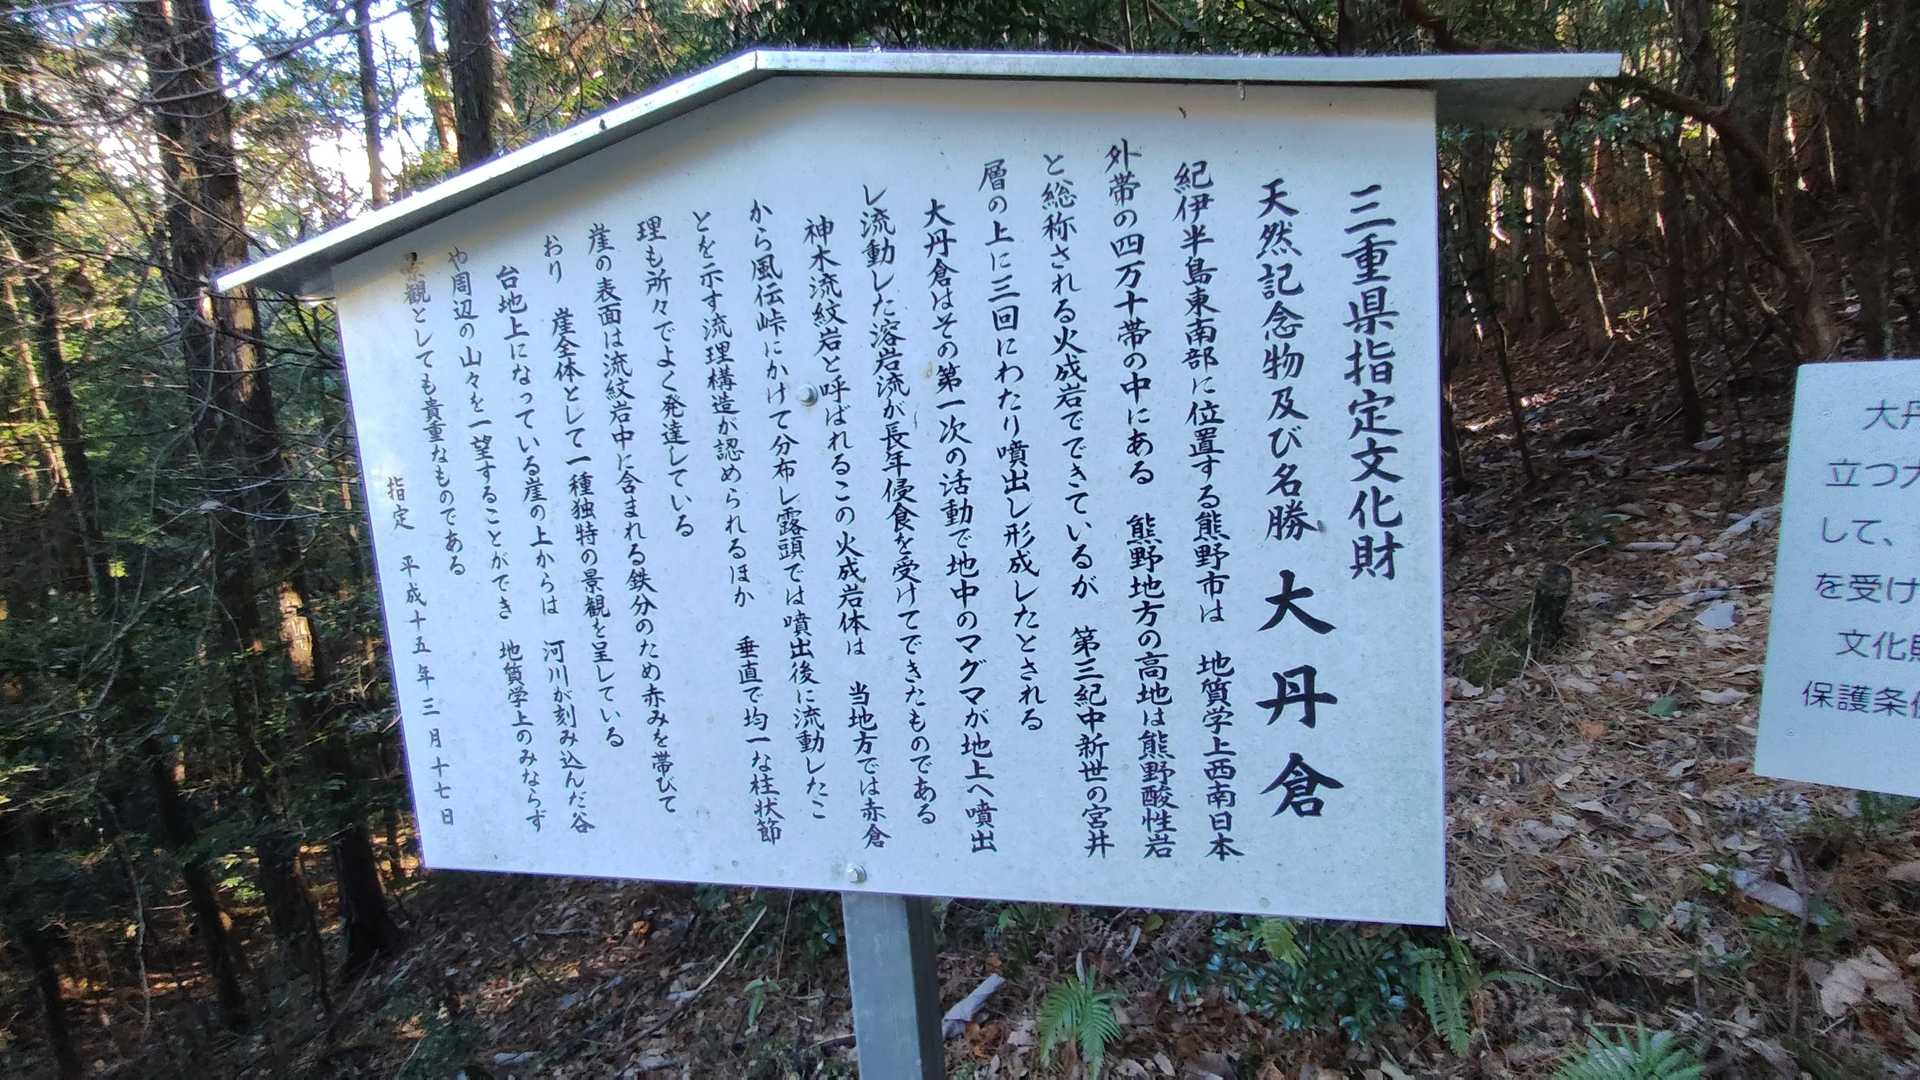 三重県指定文化財
天然記念物及び名勝 大丹倉
紀伊半島東南部に位置する熊野市は 地質学上西南日本
外帯の四万十帯の中にある 熊野地方の高地は熊野酸性岩
と総称される火成岩でできているが 第三紀中新世の宮井
層の上に三回にわたり噴出し形成したとされる
大丹倉はその第一次の活動で地中のマグマが地上へ噴出
し流動した溶岩流が長年侵食を受けてできたものである
神木流紋岩と呼ばれるこの火成岩体は 当地方では赤倉
から風伝峠にかけて分布し露頭では噴出後に流動したこ
とを示す流理構造が認められるほか 垂直で均一な柱状節
理も所々でよく発達している
崖の表面は流紋岩中に含まれる鉄分のため赤みを帯びて
おり 崖全体として一種独特の景観を呈している
台地上になっている崖の上からは 河川が刻み込んだ谷
や周辺の山々を一望することができ 地質学上のみならず
景観としても貴重なものである
指定 平成十五年三月十七日
大丹
立つ
して、
を受け
文化財
保護条